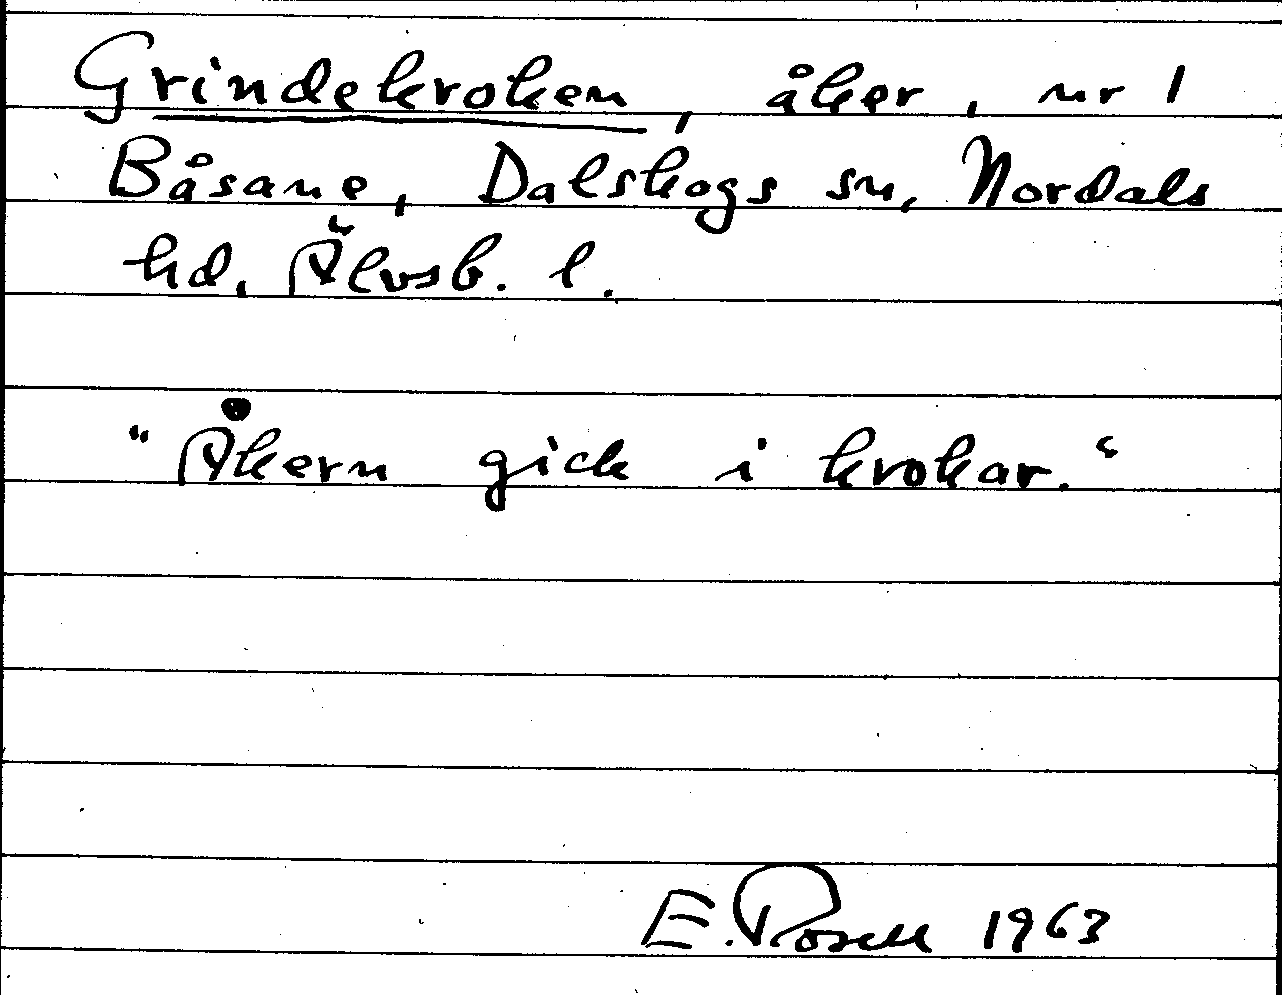 Grindekroken, åker, nr 1
Båsane, Dalskogs sn, Nordals
hd, Älvsb. l.
"Åkern gick i krokar."
E. Rosell 1963